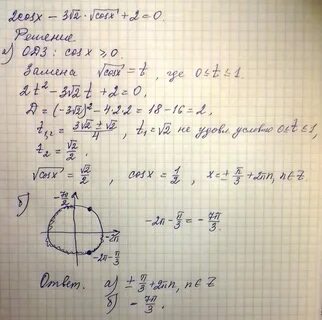 2cosx - 3√2 · √cosx + 2 = 0.
Решение
а) ОДЗ: cosx ≥ 0.
Замена √cosx = t, где 0 ≤ t ≤ 1.
2t² - 3√2 t + 2 = 0,
D = (-3√2)² - 4·2·2 = 18 - 16 = 2,
t₁,₂ = (3√2 ± √2)/4, t₁ = √2 не удовл. условию 0 ≤ t ≤ 1,
t₂ = √2/2.
√cosx = √2/2, cosx = 1/2, x = ± π/3 + 2πn, n ∈ Z
б) -7π/2
-2π - π/3 = - 7π/3.
-2π
-2π - π/3
Ответ. а) ± π/3 + 2πn, n ∈ Z
б) - 7π/3.